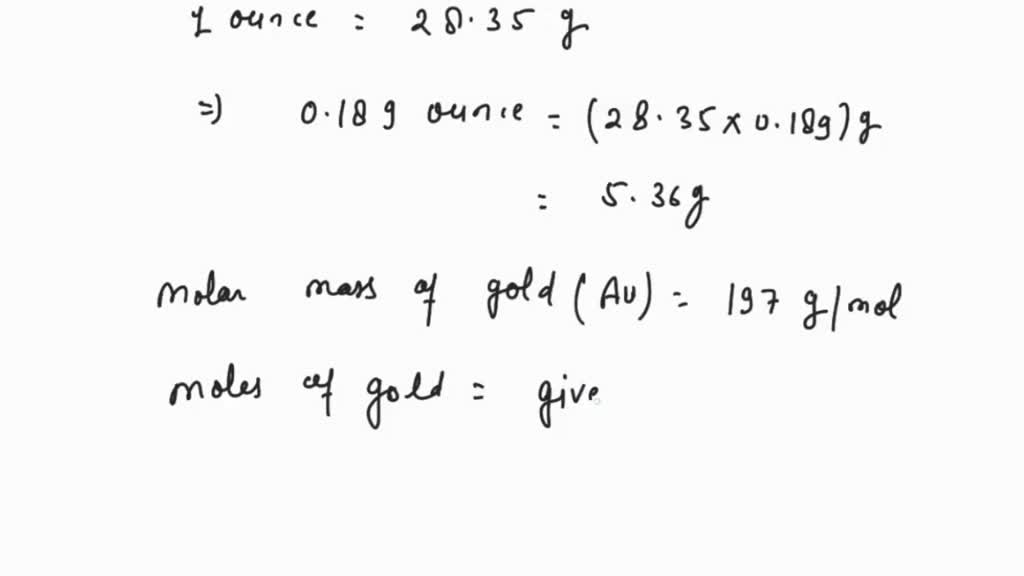 1 ounce = 28.35 g
=) 0.189 ounce = (28.35 x 0.189) g
= 5.36 g
molar mass of gold (Au) = 197 g/mol
moles of gold = give